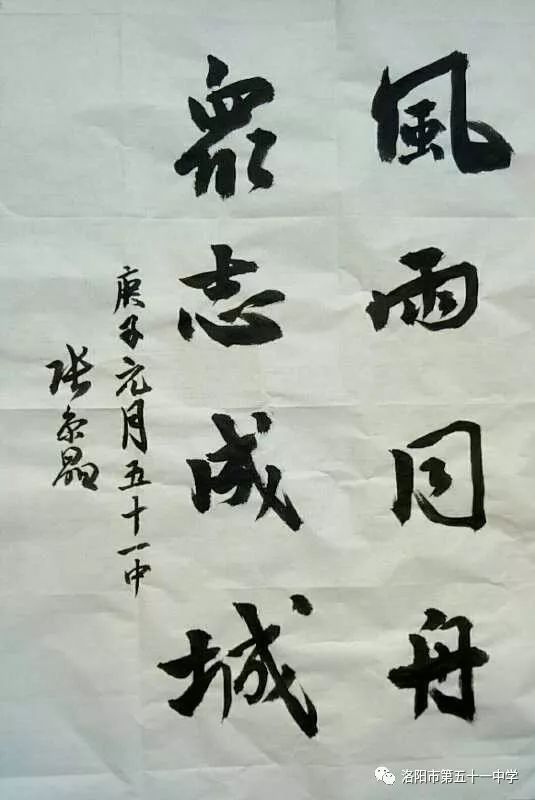 風雨同舟
眾志成城
庚子元月五十一中
张京晶
洛阳市第五十一中学